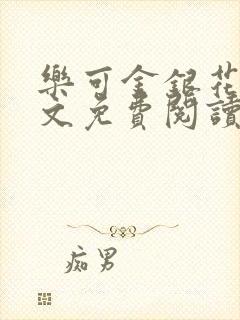 樂可金銀花
文免費閱讀
痴男